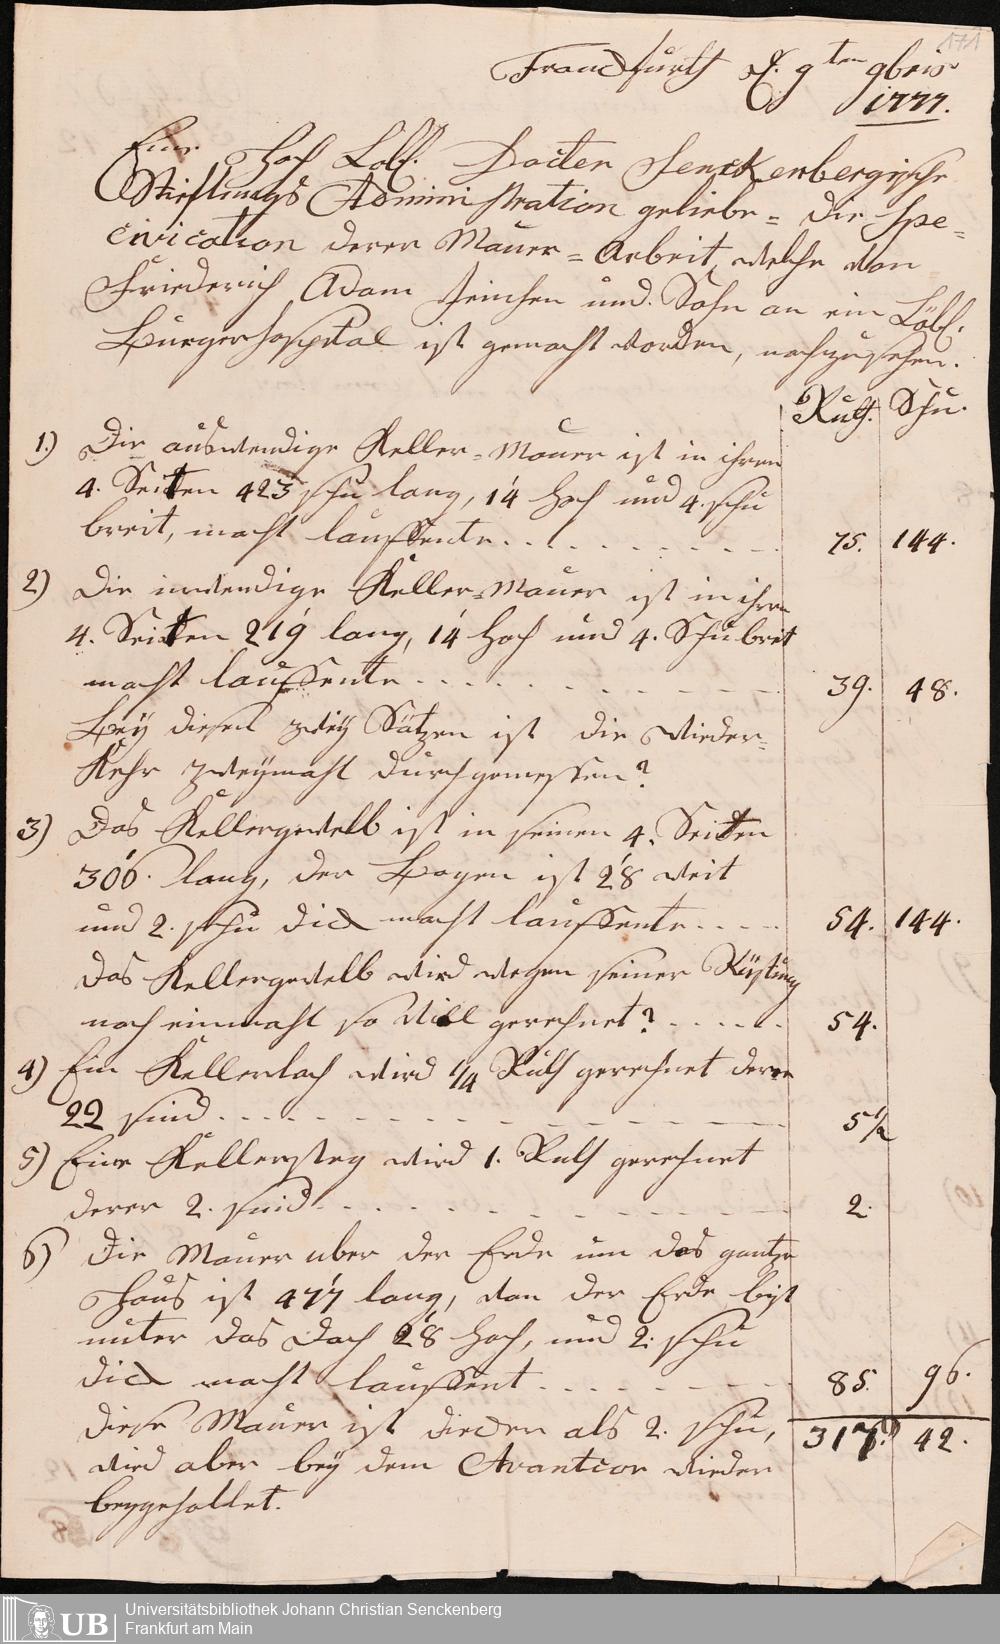 171
Franckfurth d. 9ten 9bris
1777.
Eine Hoch Löbl. Docter Senckenbergische
Stieftungs Adminnistration geliebe = die Spe=
civication derer Mauer = Arbeit, welche von
Friederich Adam Heinchen und Sohn an ein Löbl.
Burgerhospital ist gemacht worden, nachzusehen.
Ruth. Schu.
1.) Die auswendige Keller = Mauer ist in ihren
4. Seitten 423 schu lang, 14 hoch und 4. schu
breit, macht lauffente . . . 75. 144.
2) Die inwendige Keller = Mauer ist in ihre
4. Seitten 219 lang, 14 hoch und 4. Schu breit
macht lauffente . . . 39. 48.
Bey diesen zwey Sätzen ist die Wieder=
Kehr zweymahl durchgemessen?
3) Das Kellergewelb ist in seinen 4. Seitten
306. lang, der Bogen ist 28 weit
und 2. schu dick macht lauffente . . . 54. 144.
das Kellergewelb wird wegen seiner Rüstung
noch einmahl so viell gerechnet? . . . 54.
4) Ein Kellerloch wird 1/4 Ruth gerechnet deren
22 sind . . . 5 1/2
5) Eine Kellersteg wird 1. Ruth gerechnet
derer 2. sind . . . 2.
6) Die Mauer uber der Erde um das gantze
Haus ist 477 lang, von der Erde bist
unter das Dach 28 hoch, und 2. schu
dick macht lauffent . . . 85. 96.
diese Mauer ist dicker als 2. schu, 317. 42.
wird aber bey dem Avantcor wieder
beygehollet.
UB Universitätsbibliothek Johann Christian Senckenberg
Frankfurt am Main